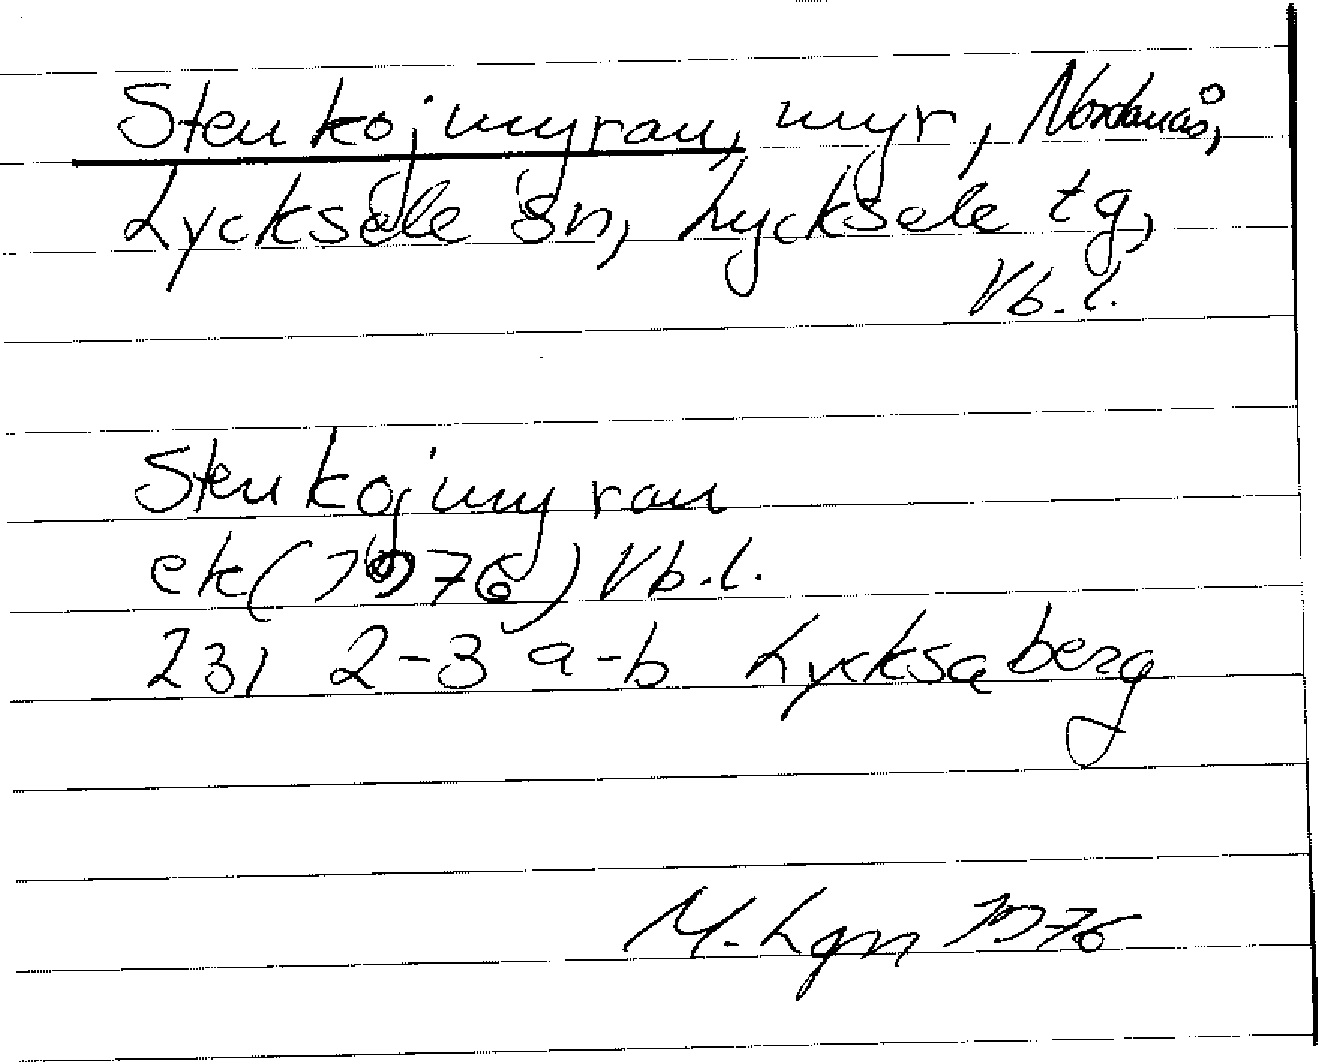 Stenkojmyran, myr, Nordanås,
Lycksele sn, Lycksele tg,
Vb.l.
Stenkojmyran
ek (1976) Vb.l.
23I 2-3 a-b Lycksaberg
M. Lgn 1976